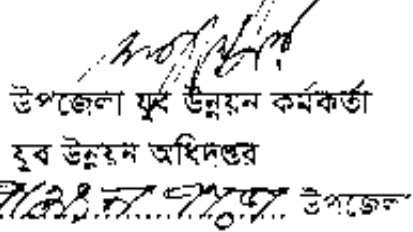 উপজেলা যুব উন্নয়ন কর্মকর্তা
যুব উন্নয়ন অধিদপ্তর
উপজেলা